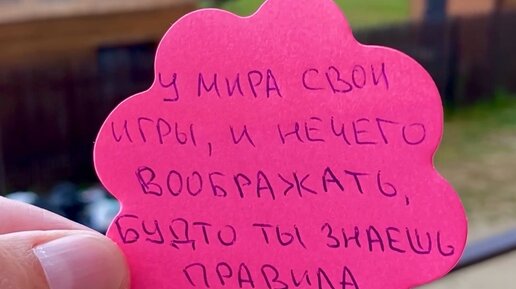 У МИРА СВОИ
ИГРЫ, И НЕЧЕГО
ВООБРАЖАТЬ,
БУДТО ТЫ ЗНАЕШЬ
ПРАВИЛА